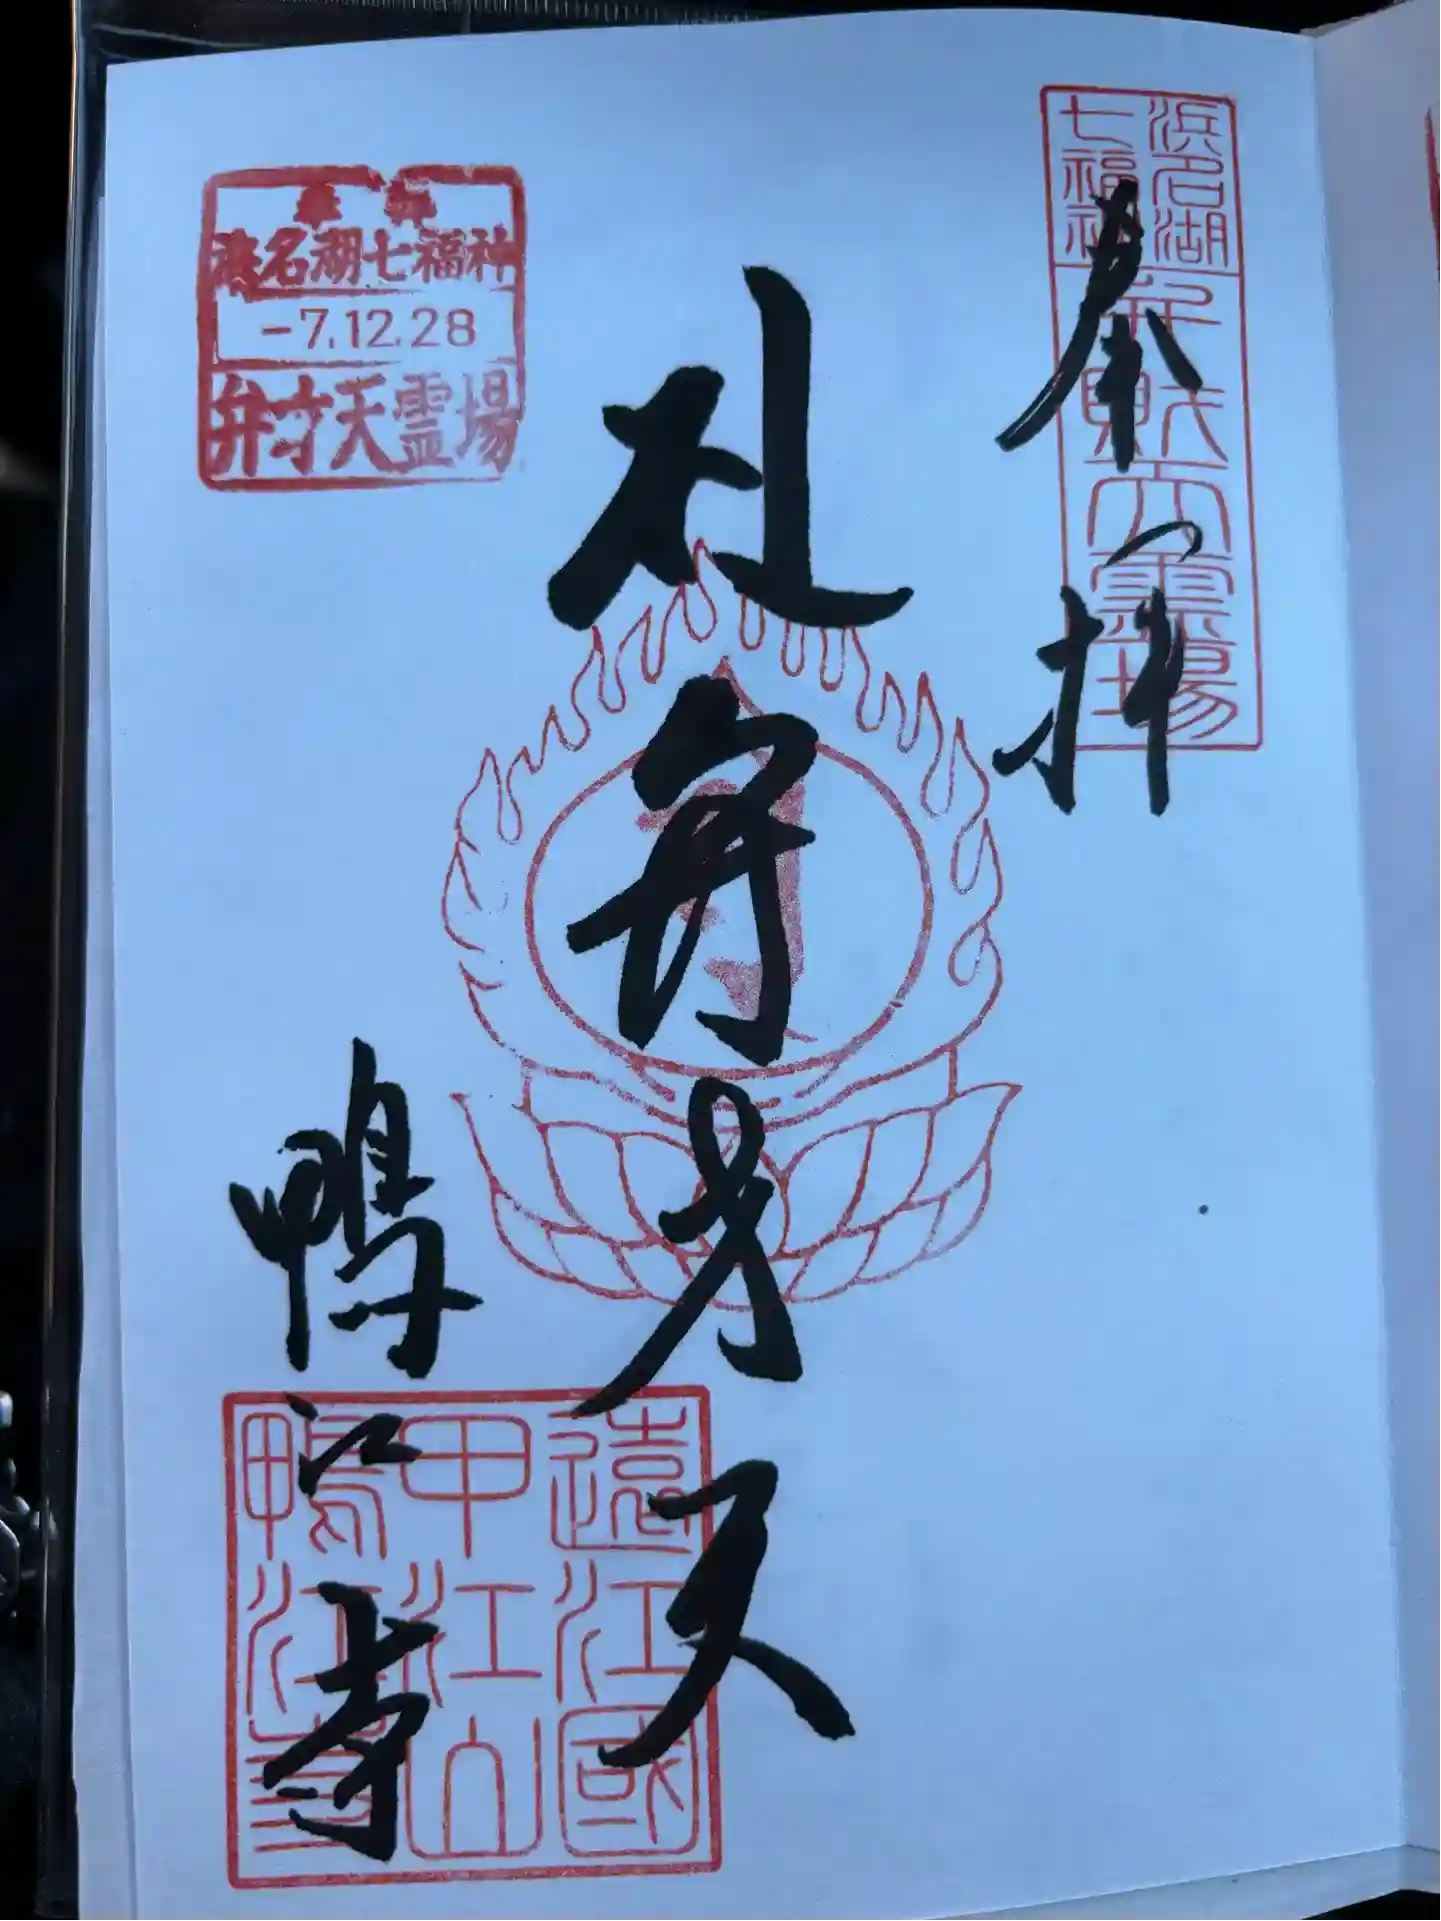 浜名湖
七福神
弁財天霊場
奉拝
札弁才天
浜名湖七福神
-7.12.28
弁才天霊場
鴨江寺
遠江國
甲江山
鴨江寺